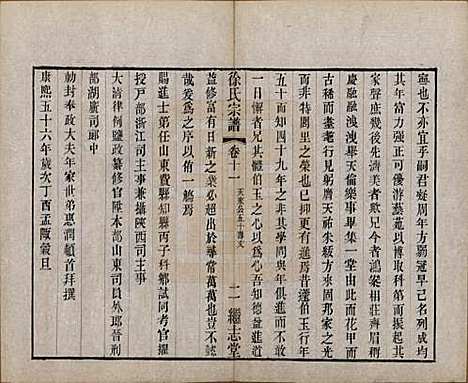 寧也不亦宜乎嗣君發周年方弱冠早名列成均
其年其才正可優游藝苑以博取科第而振起其
家聲庶幾後先濟美者歟兄今者鴻案相莊齊眉
慶融融洩洩舉天倫樂事畢集一堂由此而花甲而
古稀而耄耋而期頤升見躬膺天祐朱紱方來固不
而非特閭里之榮也抑又有為兄進者蘧伯玉行年
五十而知四十九年之非其學問與年俱進而不以
一日懈者兄其體伯玉之心以為心吾知德益進道
徐氏宗譜
卷十一
天來公五十壽文
二
繼志堂
益修富有日新之業必超出於尋常萬萬也豈不懿
哉爰為之序以侑一觴焉
賜進士第任山東費縣知縣丙子科鄉試同考官擢
授戶部浙江司主事兼攝陝西司主事
大清律例館政纂修官陞本部山東司員外郎晉刑
部湖廣司郎中
勅封奉政大夫年家世弟惠潤頓首拜撰
康熙五十六年歲次丁酉孟陬穀旦